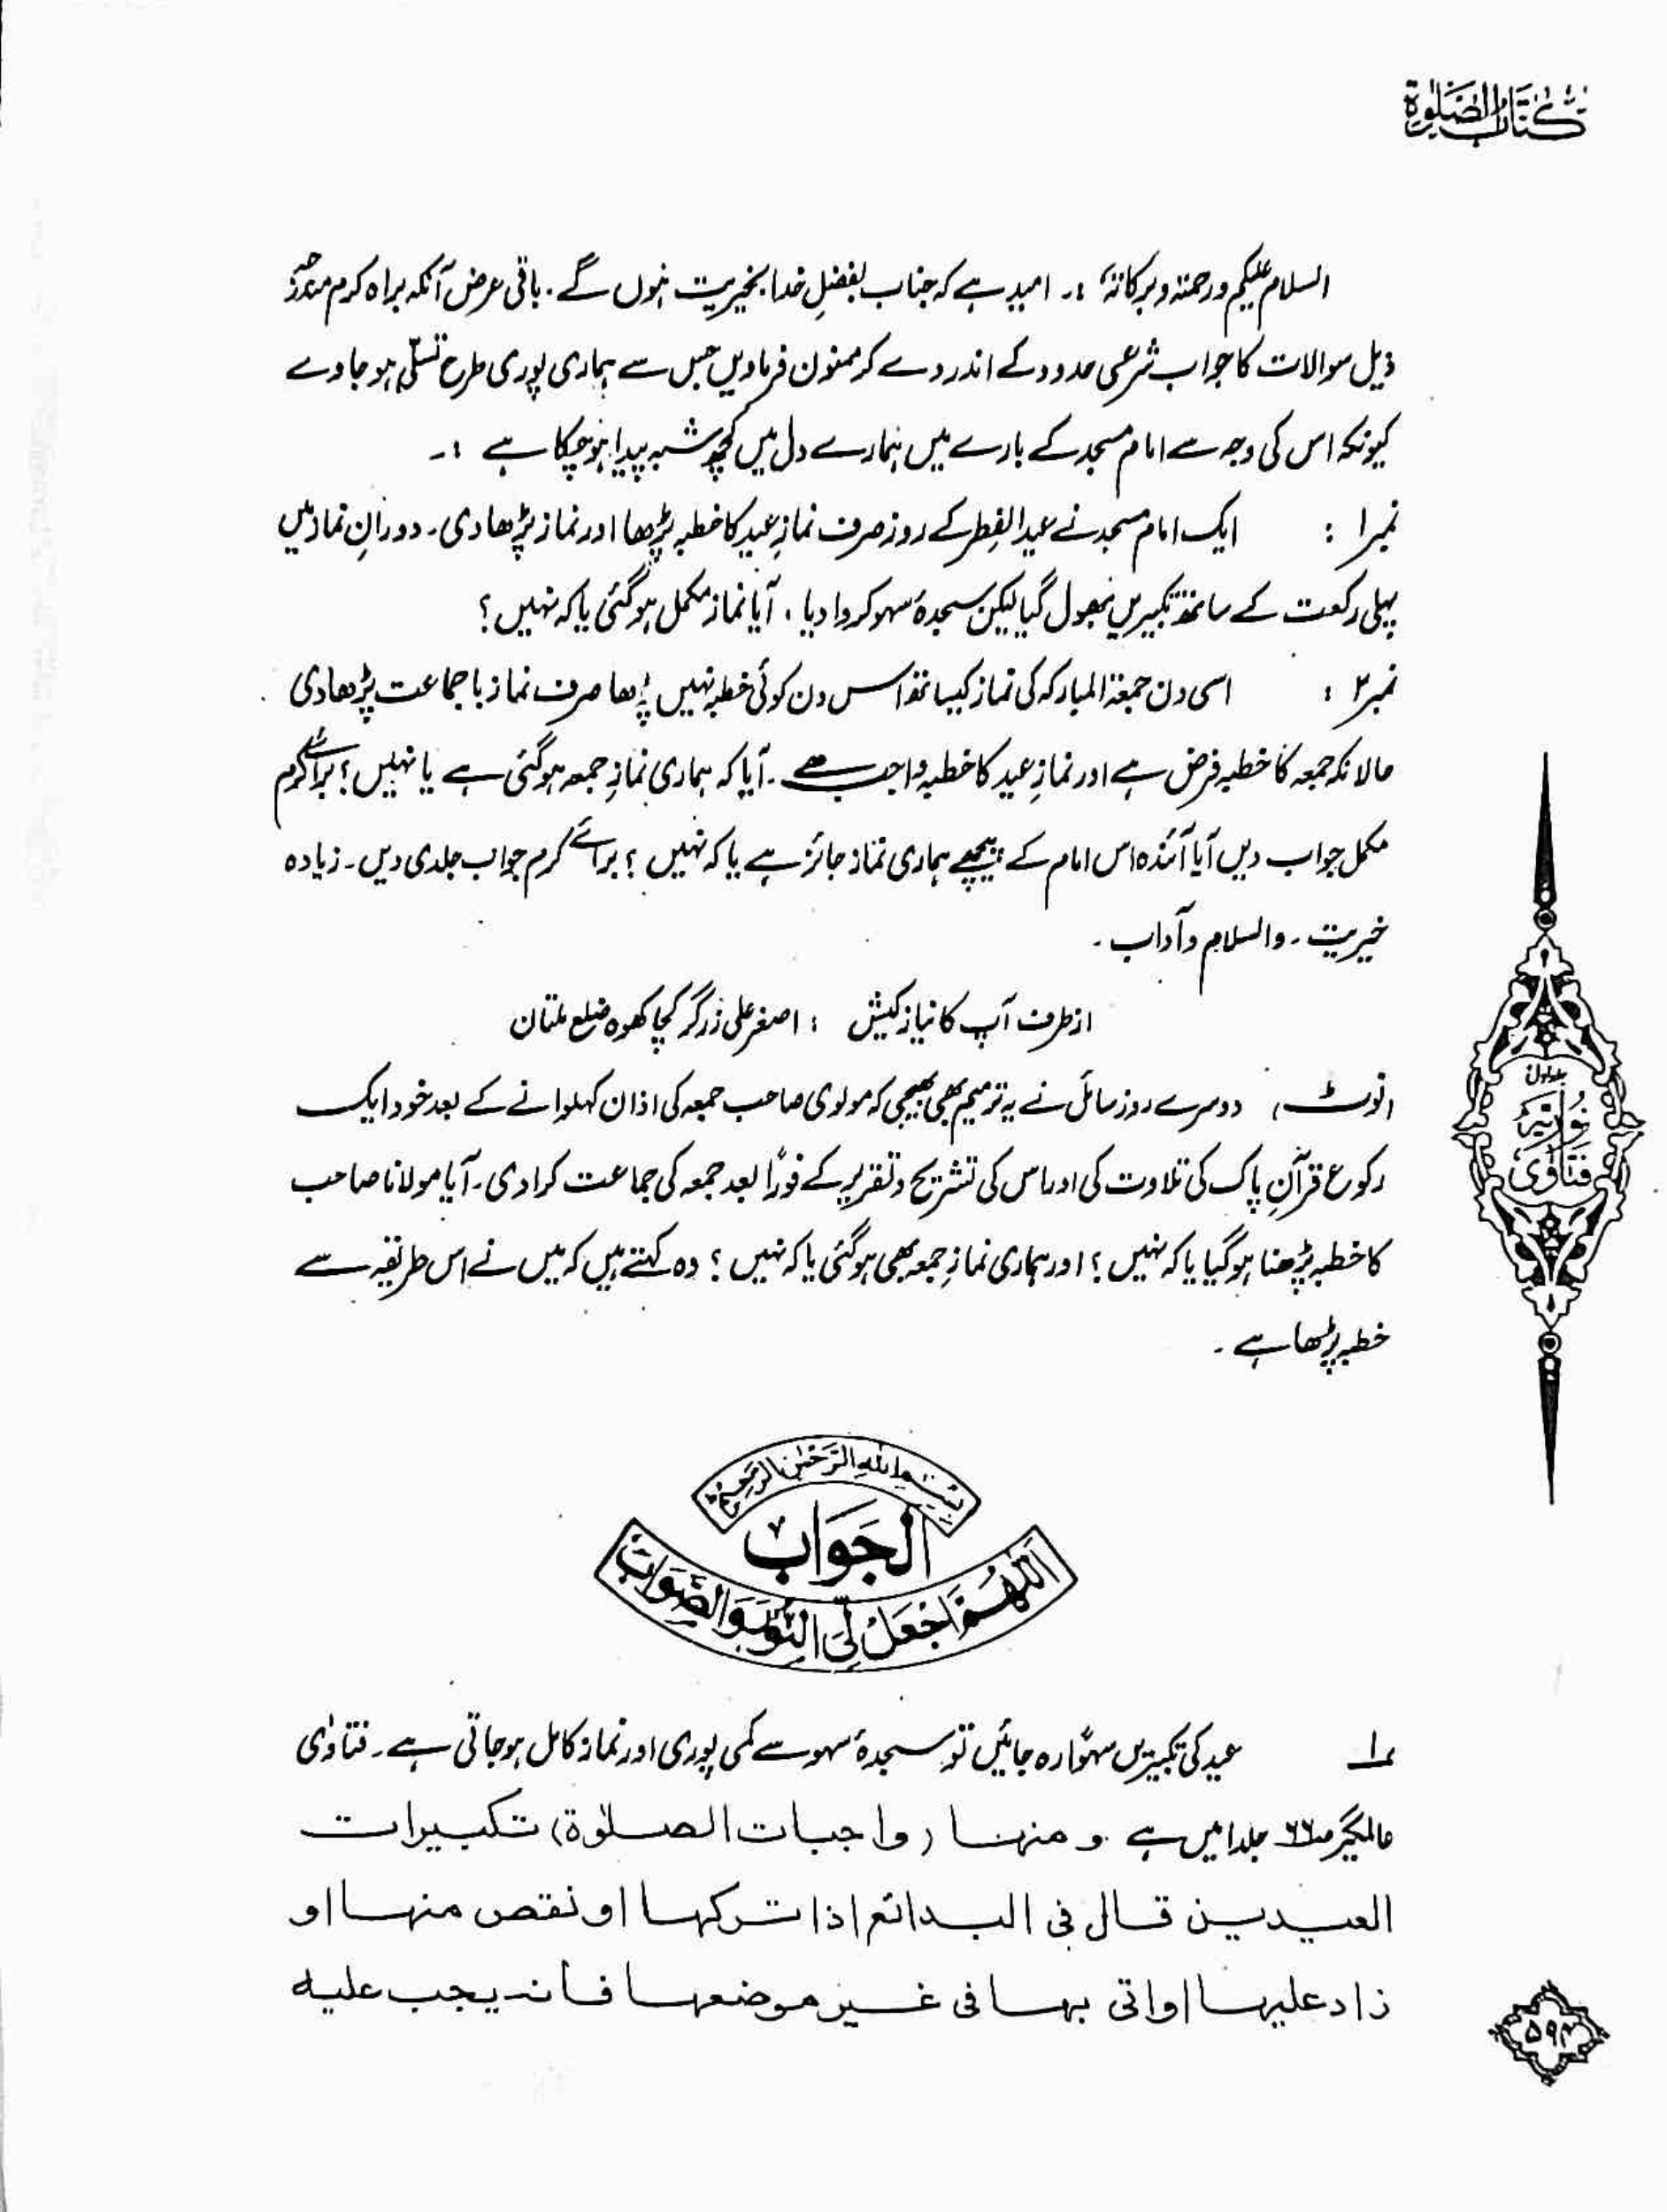 كتاب الصلوة
السلام علیکم ورحمتہ وبرکاتہ، :۔ امید ہے کہ جناب بفضلِ خدا بخیریت ہوں گے۔ باقی عرض آنکہ براہ کرم مندرجہ
ذیل سوالات کا جواب شرعی حدود کے اندر دے کر ممنون فرمادیں جس سے ہماری پوری طرح تسلّی ہو جاوے
کیونکہ اس کی وجہ سے امام مسجد کے بارے میں ہمارے دل میں کچھ شبہ پیدا ہو چکا ہے :۔
نمبر۱ : ایک امام مسجد نے عید الفطر کے روز صرف نمازِ عید کا خطبہ پڑھا اور نماز پڑھا دی۔ دورانِ نماز میں
پہلی رکعت کے ساتھ تکبیریں بھول گیا لیکن سجدۂ سہو کروا دیا ، آیا نماز مکمل ہو گئی یا کہ نہیں ؟
نمبر۲ : اسی دن جمعۃ المبارکہ کی نماز کیساتھ اس دن کوئی خطبہ نہیں پڑھا صرف نماز با جماعت پڑھا دی
حالانکہ جمعہ کا خطبہ فرض ہے اور نمازِ عید کا خطبہ واجب ہے ۔ آیا کہ ہماری نمازِ جمعہ ہو گئی ہے یا نہیں ؟ برائے کرم
مکمل جواب دیں آیا آئندہ اس امام کے پیچھے ہماری نماز جائز ہے یا کہ نہیں ؟ برائے کرم جواب جلدی دیں ۔ زیادہ
خیریت ۔ والسلام و آداب ۔
از طرف آپ کا نیاز کیش : اصغر علی زرگر کچا کھوہ ضلع ملتان
(نوٹ) دوسرے روز سائل نے یہ ترمیم بھی بھیجی کہ مولوی صاحب جمعہ کی اذان کہلوانے کے بعد خود ایک
رکوع قرآنِ پاک کی تلاوت کی اور اس کی تشریح و تقریر کے فورًا بعد جمعہ کی جماعت کرا دی ۔ آیا مولانا صاحب
کا خطبہ پڑھنا ہو گیا یا کہ نہیں ؟ اور ہماری نمازِ جمعہ بھی ہو گئی یا کہ نہیں ؟ وہ کہتے ہیں کہ میں نے اس طریقہ سے
خطبہ پڑھا ہے ۔
جلد اول
فتاوی
نوریہ
بسم الله الرحمن الرحيم
الجواب
اللهم اجعل لی النور والصواب
۱ عید کی تکبیریں سہوًا رہ جائیں تو سجدۂ سہو سے کمی پوری اور نماز کامل ہو جاتی ہے ۔ فتاوٰی
عالمگیر ص۶۶ جلد۱ میں ہے و منها (واجبات الصلوٰة) تكبيرات
العيدين قال فی البدائع اذا تركها او نقص منها او
زاد عليها او اتی بها فی غير موضعها فانه يجب عليه
۵۹۳